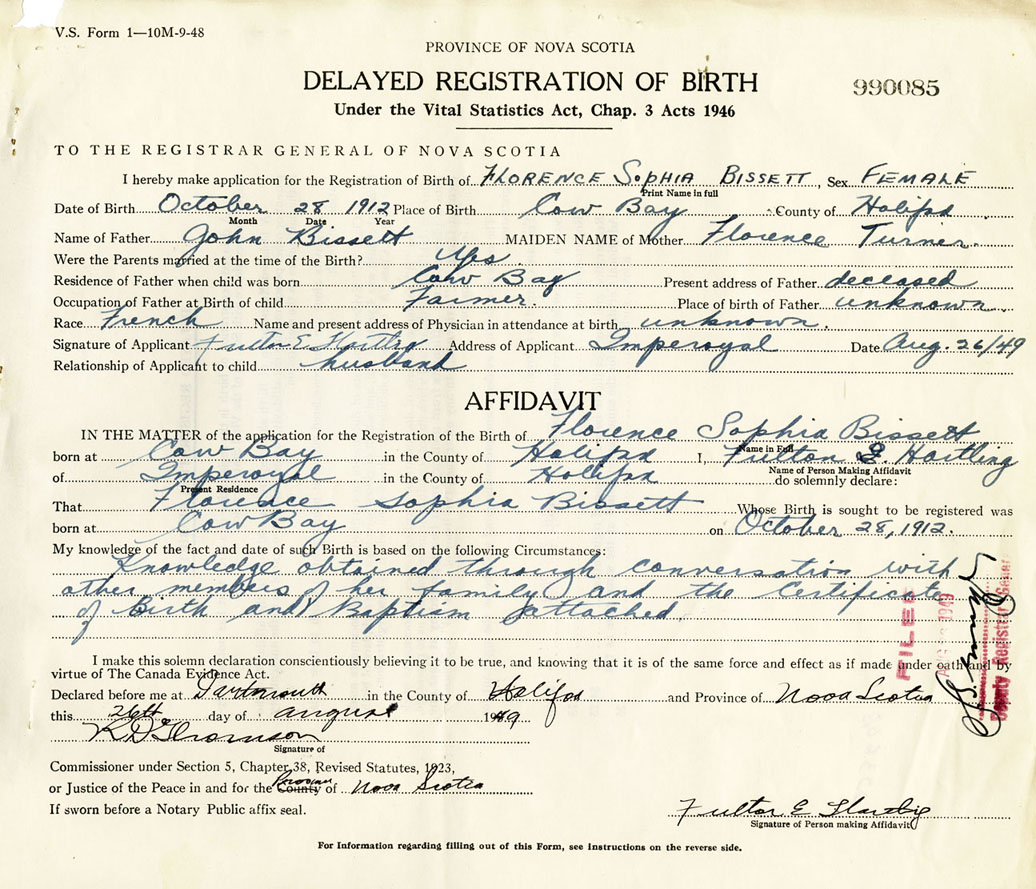 V.S. Form 1—10M-9-48
PROVINCE OF NOVA SCOTIA
DELAYED REGISTRATION OF BIRTH
990085
Under the Vital Statistics Act, Chap. 3 Acts 1946
TO THE REGISTRAR GENERAL OF NOVA SCOTIA
I hereby make application for the Registration of Birth of FLORENCE SOPHIA BISSETT, Sex FEMALE
Print Name in full
Date of Birth October 28 1912 Place of Birth Cow Bay County of Halifax
Month Date Year
Name of Father John Bissett MAIDEN NAME of Mother Florence Turner.
Were the Parents married at the time of the Birth? Yes.
Residence of Father when child was born Cow Bay Present address of Father deceased
Occupation of Father at Birth of child Farmer. Place of birth of Father unknown
Race French Name and present address of Physician in attendance at birth unknown.
Signature of Applicant Fulton E Hartling Address of Applicant Imperoyal Date Aug. 26/49
Relationship of Applicant to child husband
AFFIDAVIT
IN THE MATTER of the application for the Registration of the Birth of Florence Sophia Bissett
Name in Full
born at Cow Bay in the County of Halifax I, Fulton E Hartling
Name of Person Making Affidavit
of Imperoyal in the County of Halifax do solemnly declare:
Present Residence
That Florence Sophia Bissett Whose Birth is sought to be registered was
born at Cow Bay on October 28, 1912.
My knowledge of the fact and date of such Birth is based on the following Circumstances:
Knowledge obtained through conversation with
other members of her family and the Certificate
of Birth and Baptism attached.
FILED
AUG 1949
Deputy Registrar General
I make this solemn declaration conscientiously believing it to be true, and knowing that it is of the same force and effect as if made under oath and by
virtue of The Canada Evidence Act.
Declared before me at Dartmouth in the County of Halifax and Province of Nova Scotia
this 26th day of August 1949
K D Thomson
Signature of
Commissioner under Section 5, Chapter 38, Revised Statutes, 1923,
or Justice of the Peace in and for the County Province of Nova Scotia
If sworn before a Notary Public affix seal.
Fulton E Hartling
Signature of Person making Affidavit
For Information regarding filling out of this Form, see Instructions on the reverse side.